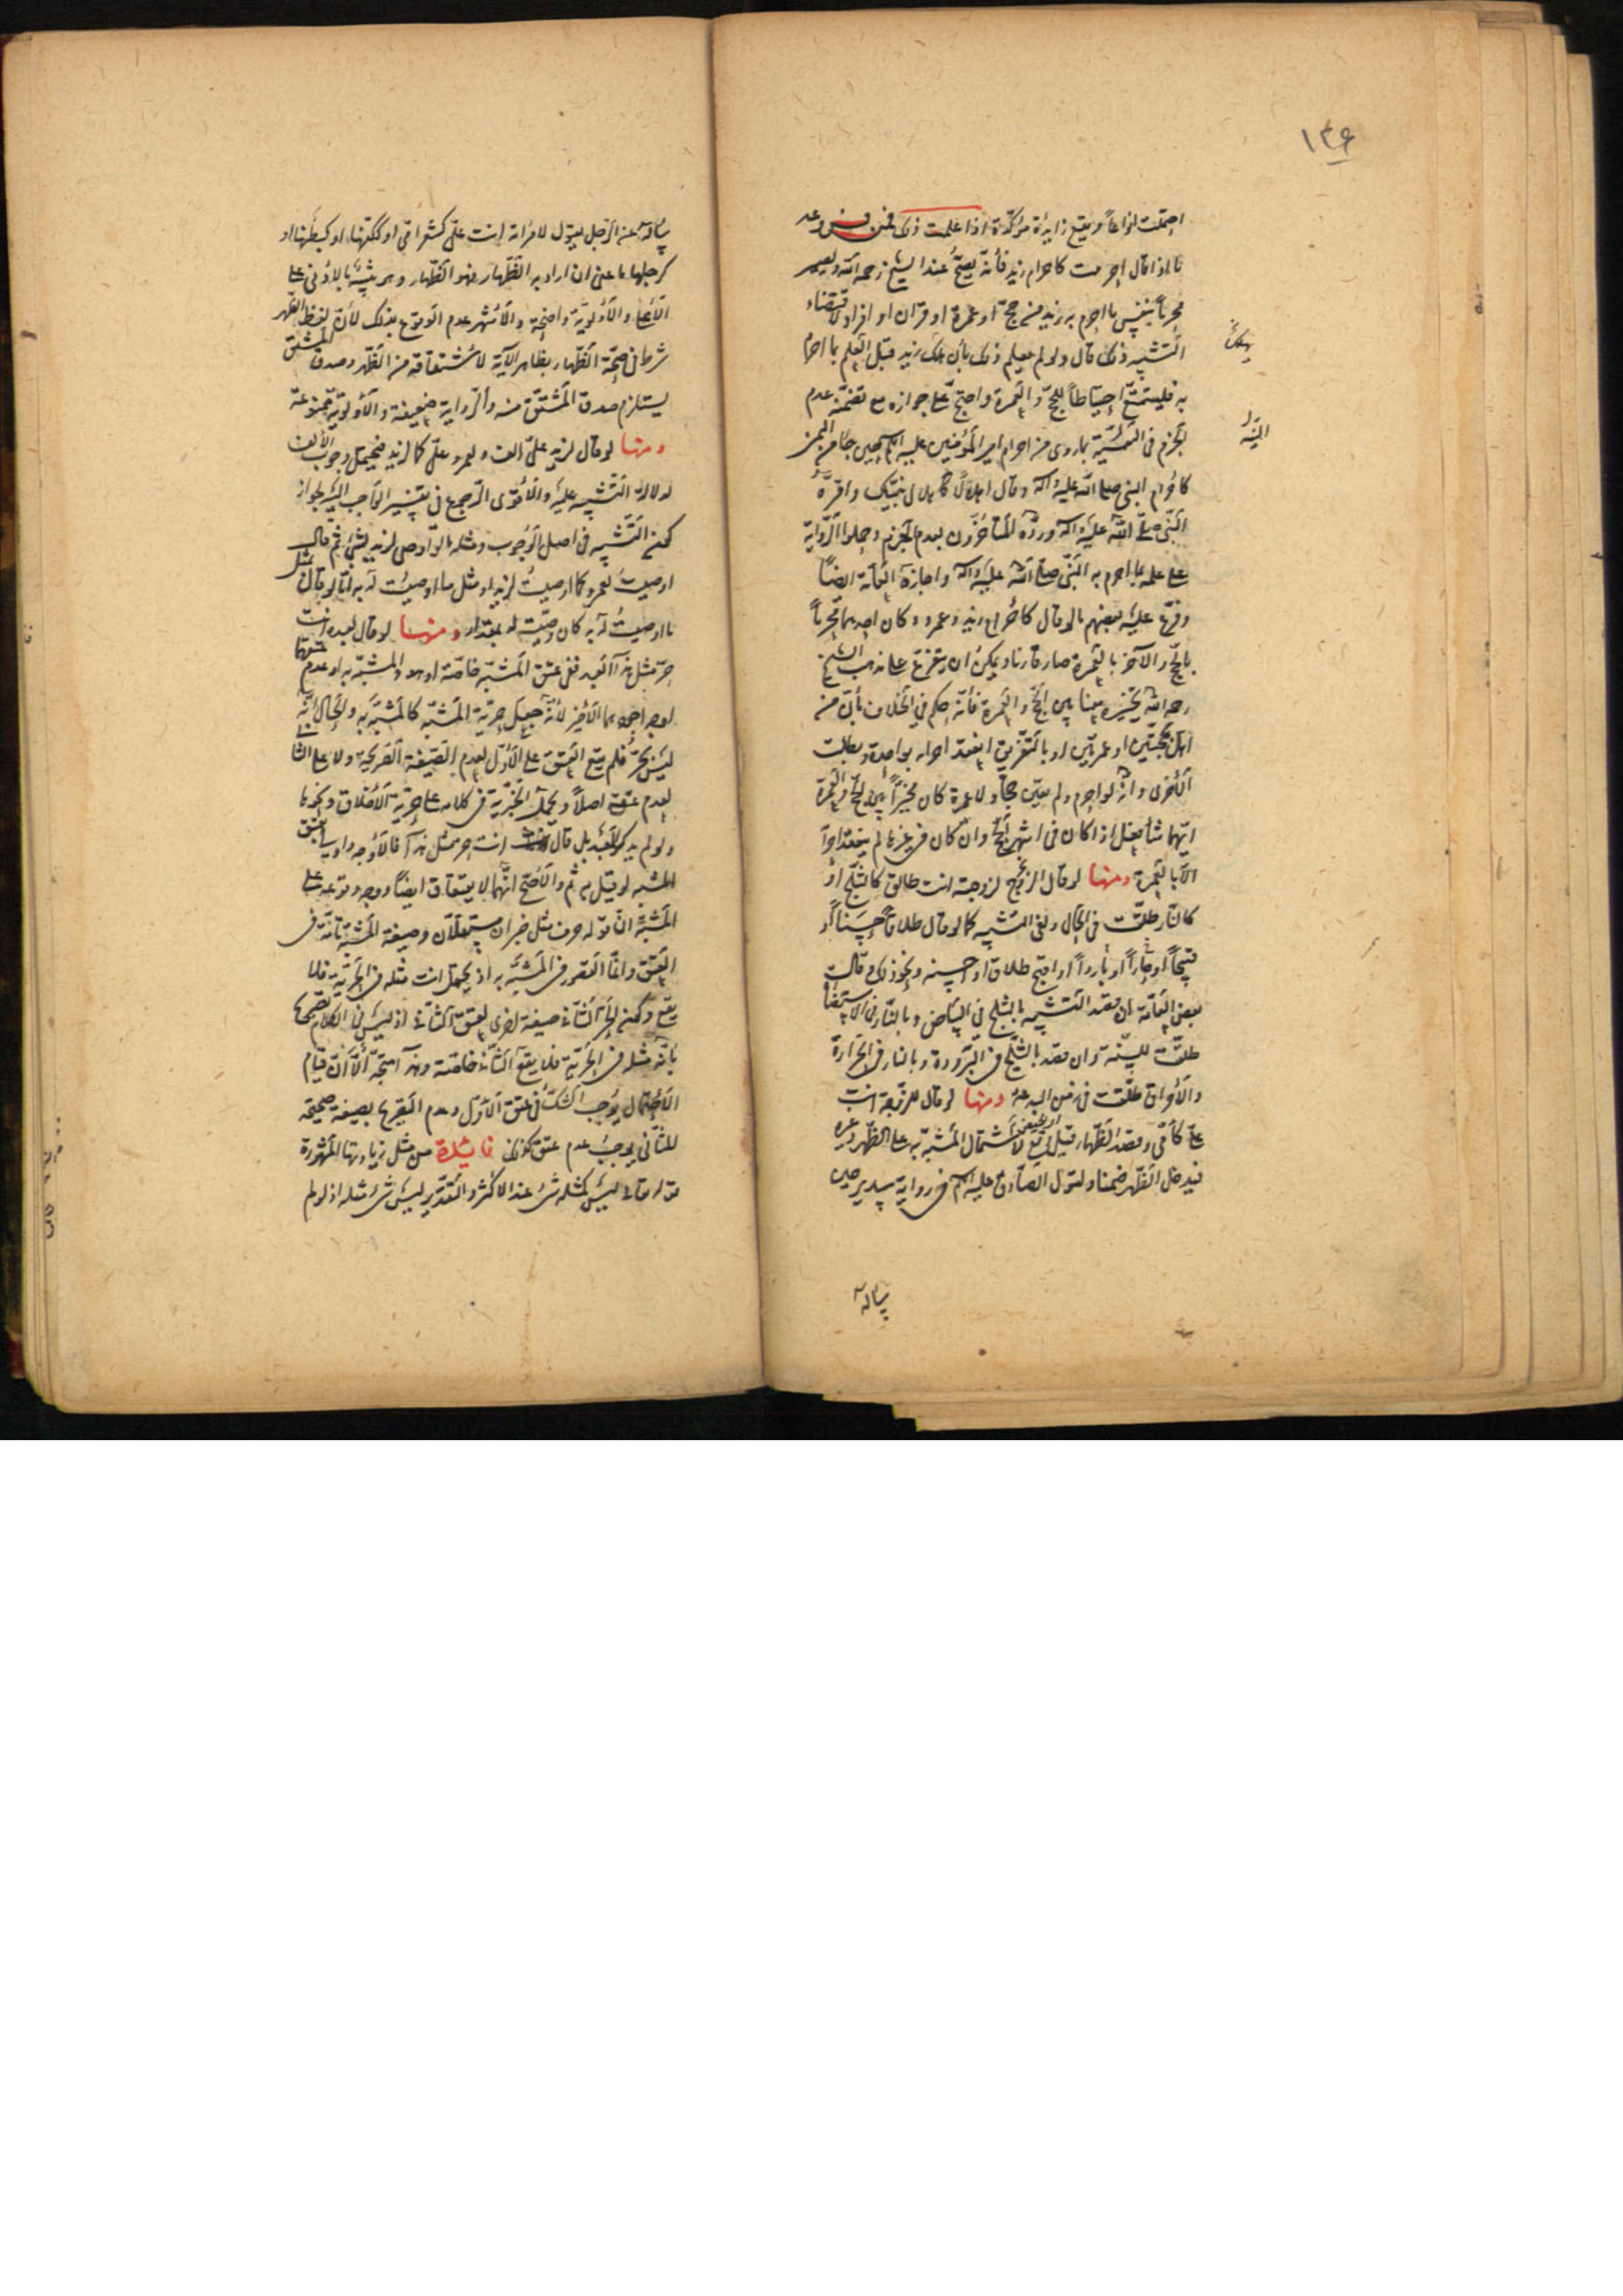 ١٣۶
احتملت انواعاً و يقع زايدة مؤكّدة اذا علمت ذلك فمن فروعه
ما اذا قال احرمت كاحرام زيد فأنّه يصحّ عند الشيخ رحمه اللّه و يصير
محرماً بنفس ما احرم به زيد من حجّ او عمرة او قران او افراد لاقتضاء
التشبيه ذلك قال ولو لم يعلم ذلك بأن هلك زيد قبل العلم بما احرم
به فليتمتّع احتياطاً للحجّ و العمرة و احتج على جوازه مع تضمّنه عدم
الجزم فى النيّة بما روى من احرام امير المؤمنين عليه السلم حين جاء من اليمن
كاحرام النبى صلى اللّه عليه وآله وقال اهلالاً كاهلال نبيّك و اقرّه
النّبى صلّى اللّه عليه وآله وردّه المتأخّرون بعدم الجزم و حملوا الرّواية
على علمه بما احرم به النبّى صلى اللّه عليه وآله و اجازه العامّة ايضاً
و فرّع عليه بعضهم ما لو قال كاحرام زيد و عمرو و كان احدهما محرماً
بالحجّ و الآخر بالعمرة صار قارنا و يمكن ان يتفرّع على مذهب الشيخ
رحمه اللّه تخييره بينهما بين الحجّ و العمرة فأنّه حكم فى الخلاف بأنّ من
اهلّ بحجّتين او عمرتين او بالتفريق انعقد احرامه بواحدة و بطلت
الاخرى و انّه لو احرم ولم يعيّن حجّاً ولا عمرة كان مخيّراً بين الحجّ و العمرة
ايّهما شاء فعل اذا كان فى اشهر الحجّ وان كان فى غيرها لم ينعقد احرامه
الّا بالعمرة ومنها لو قال الزوج لزوجته انت طالق كالثلج او
كالنّار طلّقت فى الحال ولغى التشبيه كما لو قال طلاقاً حسناً او
قبيحاً او حارّاً او بارداً او اقبح طلاق او احسنه و نحو ذلك و قال
بعض العامّة ان قصد التشبيه بالثلج فى البياض و بالنّار فى الاستضاءة
طلّقت للسنّة و ان قصد بالثّلج فى البرودة و بالنار فى الحرارة
والأحراق طلّقت فى زمن البدعة ومنها لو قال للزوجة انت
علىّ كأمّى و قصد الظّهار قيل يقع لاشتمال المشبّه به على الظّهر وغيره
فيدخل الظّهر ضمنا ولقول الصّادق عليه السلم فى رواية سدير حين
سأله
سأله عن الرّجل يقول لامرأته انت علىّ كشعر امّى او ككفّها او كبطنها او
كرجلها ما عنى ان اراد به الظّهار فهو الظّهار و هو تنبيه بالادنى على
الأعلى والأولويّة واضحة والأشهر عدم الوقوع بذلك لأنّ لفظ الظّهر
شرط فى صحّة الظّهار بظاهر الآية لأشتقاقه من الظّهر و صدق المشتق
يستلزم صدق المشتق منه والرّواية ضعيفة والأولويّة ممنوعة
ومنها لو قال لزيد علىّ الف ولعمرو علىّ كما لزيد فيحتمل وجوب الألف
لدلالة التّشبيه عليه والأقوى الرّجوع فى تفسير الواجب اليه لجواز
كون التّشبيه فى اصل الوجوب و مثله ما لو أوصى لزيد بشئ ثم قال
اوصيت لعمرو كما اوصيت لزيد او مثل ما اوصيت له به امّا لو قال بمثل
ما اوصيت له به كان وصيّت له بمقداره ومنها لو قال لعبده انت
حرّ مثل هذا العبد ففى عتق المشبّه خاصّة او هو والمشبّه به او عدم عتقهما
اوجه اجودها الأخير لأنّه جعل حرّية المشبّه كالمشبّه به والحال انّه
ليس بحرّ فلم يقع العتق على الأوّل لعدم الصّيغة الصّريحة ولا على الثانى
لعدم عتقه اصلاً و يحمل الحرّية فى كلامه على حرّية الأخلاق و نحوها
ولو لم يذكر العبد بل قال انت حر مثل هذا فالأوجه واولى بعتق
المشبه لو قيل به ثم والأصحّ انهّما لا يعتقان ايضاً و وجه وقوعه على
المشبّه انّ قوله حرف مثل خبران مستقلّان و صيغة المشبّه تامّة فى
العتق وانّما القصور فى المشبّه به اذ يحتمل انت مثله فى الحرّية فلا
يقع و كون الجزء الثّانى صيغة اخرى لعتق الثّانى اذ ليس فى الكلام تصريحاً
بأنّه مثله فى الحرّية فلا يقع الثّانى خاصّة وهذا متجّه الّا أنّ قيام
الأحتمال يوجب الشكّ فى عتق الأوّل وعدم التصريح بصيغة صحيحة
للثّانى يوجب عدم عتق كذلك فائدة من مثل زيادتها المشهورة
قوله تعالى ليس كمثله شئ عند الاكثر والتقدير ليس شئ مثله اذ لو لم